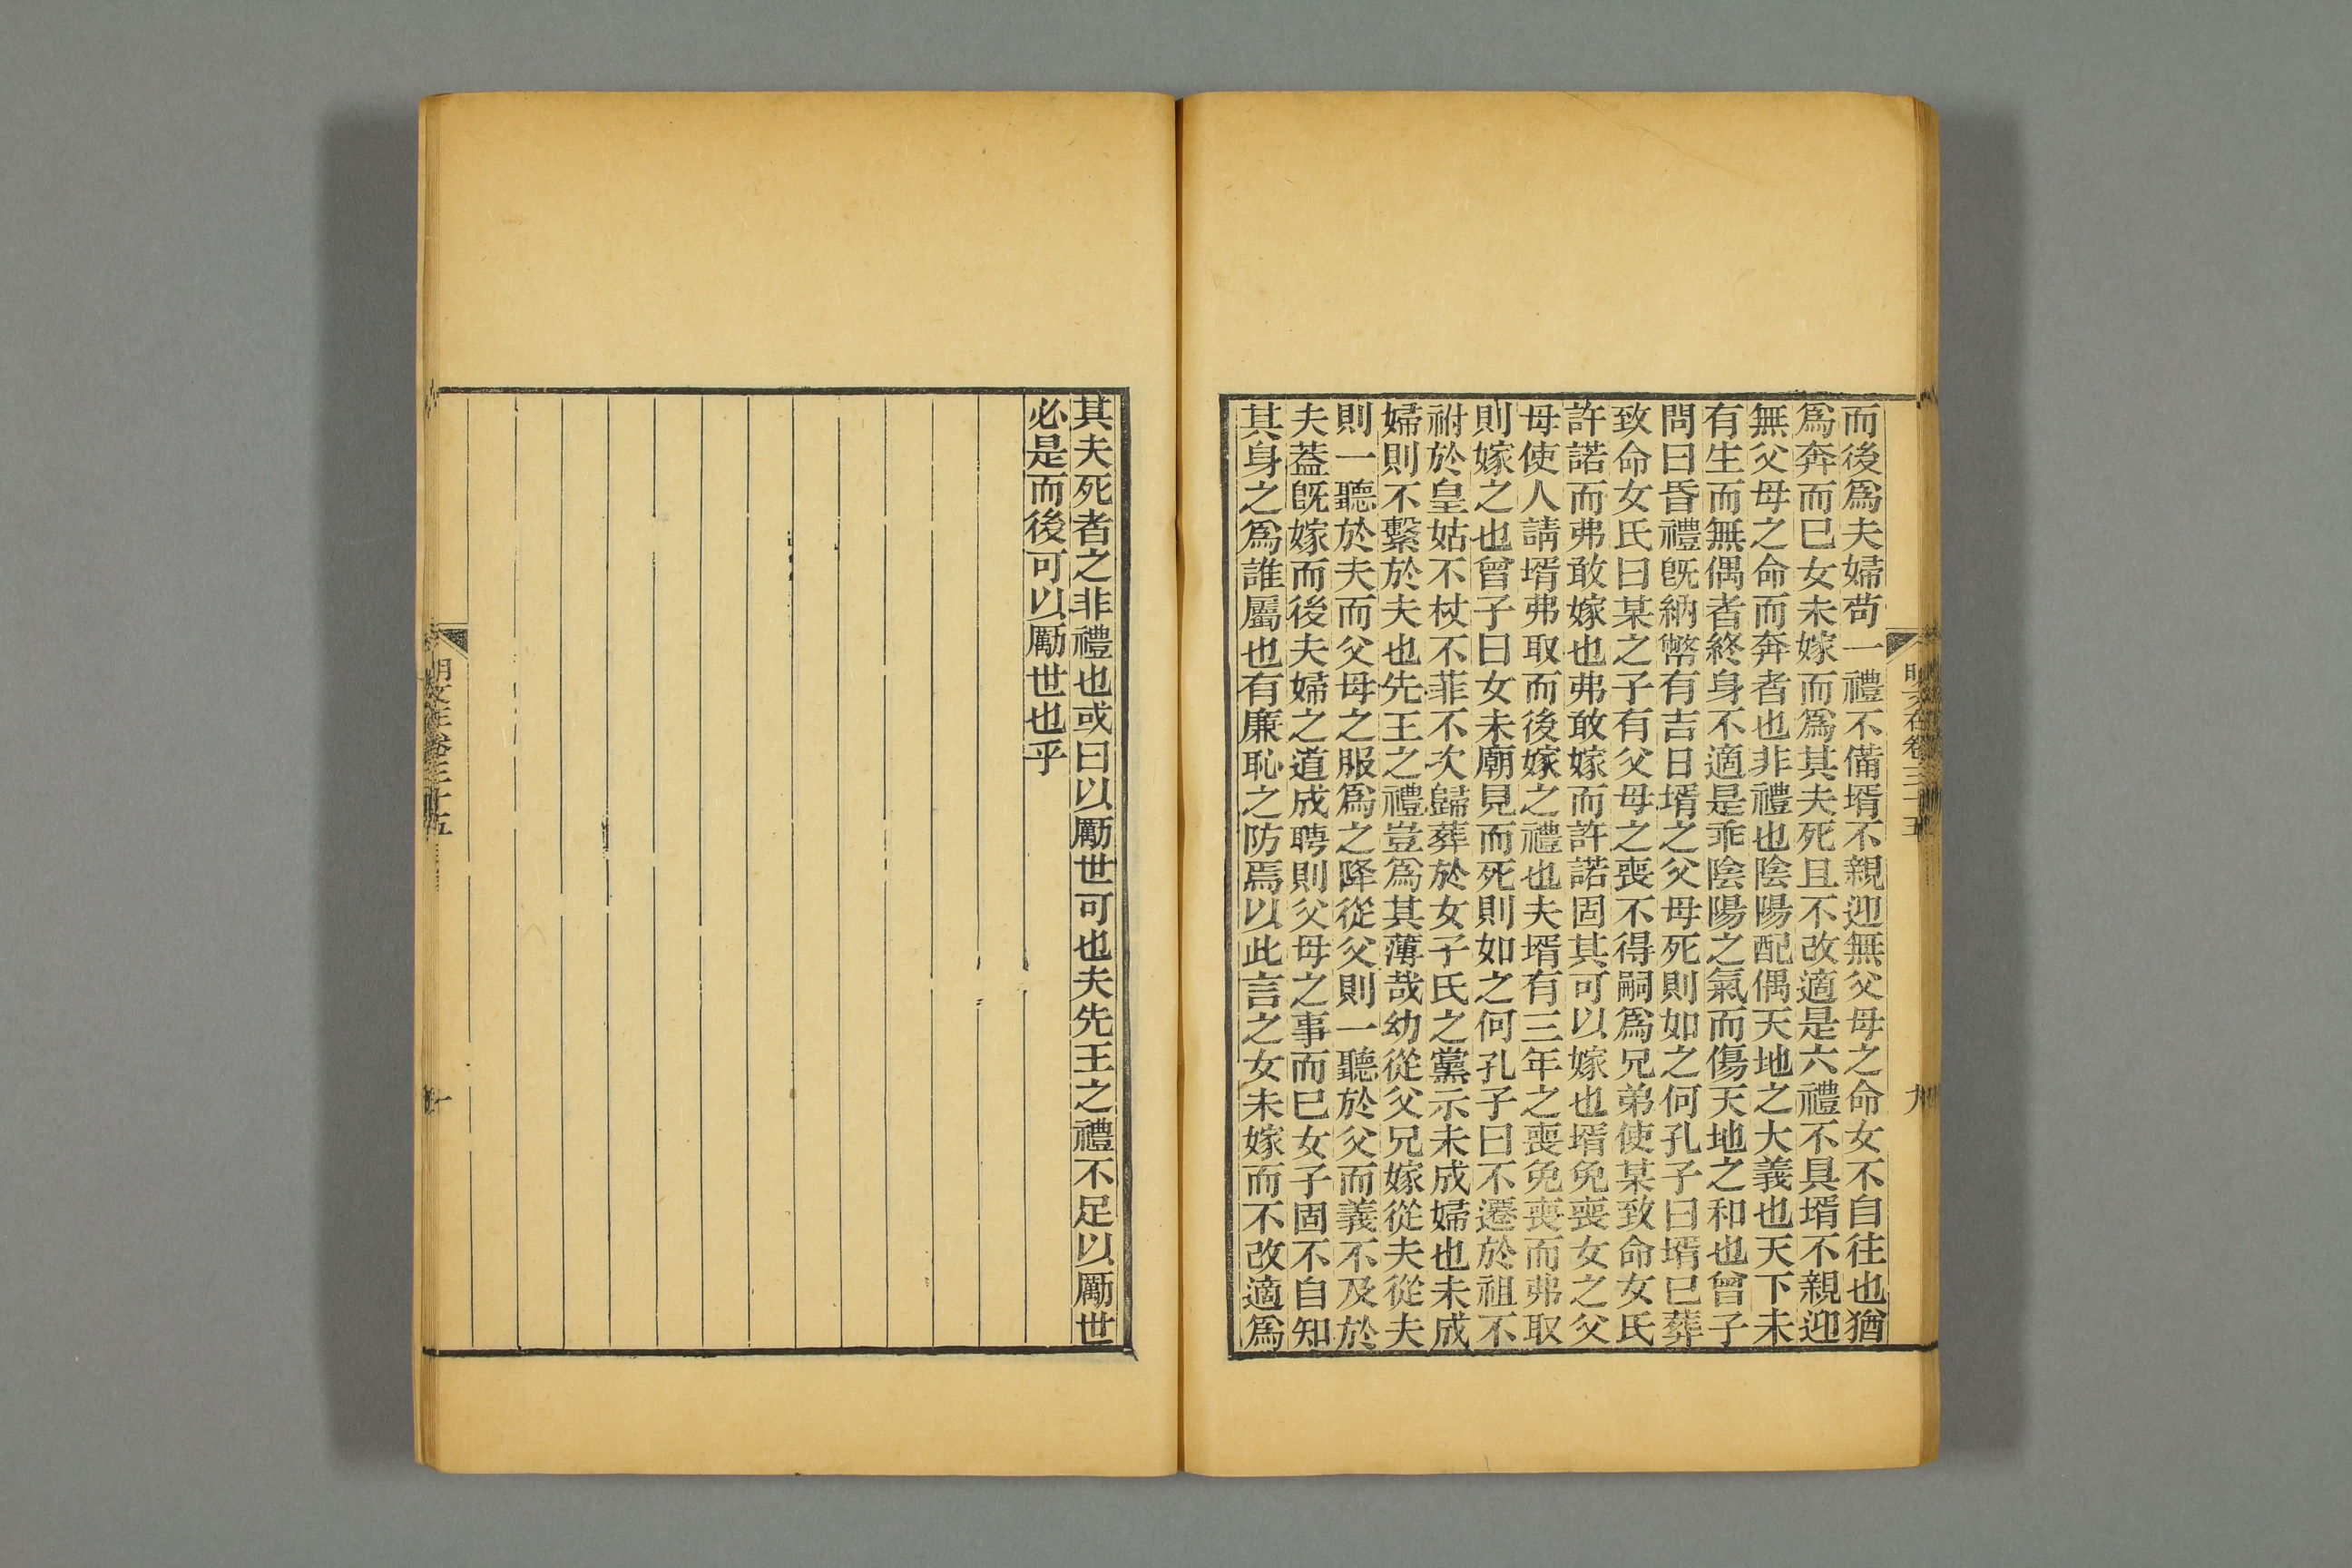 明文在卷三十五
九
而後爲夫婦苟一禮不備壻不親迎無父母之命女不自往也猶
爲奔而已女未嫁而爲其夫死且不改適是六禮不具壻不親迎
無父母之命而奔者也非禮也陰陽配偶天地之大義也天下未
有生而無偶者終身不適是乖陰陽之氣而傷天地之和也曾子
問曰昏禮旣納幣有吉日壻之父母死則如之何孔子曰壻已葬
致命女氏曰某之子有父母之喪不得嗣爲兄弟使某致命女氏
許諾而弗敢嫁也弗敢嫁而許諾固其可以嫁也壻免喪女之父
母使人請壻弗取而後嫁之禮也夫壻有三年之喪免喪而弗取
則嫁之也曾子曰女未廟見而死則如之何孔子曰不遷於祖不
祔於皇姑不杖不菲不次歸葬於女子氏之黨示未成婦也未成
婦則不繫於夫也先王之禮豈爲其薄哉幼從父兄嫁從夫從夫
則一聽於夫而父母之服爲之降從父則一聽於父而義不及於
夫蓋旣嫁而後夫婦之道成聘則父母之事而已女子固不自知
其身之爲誰屬也有廉恥之防焉以此言之女未嫁而不改適爲
其夫死者之非禮也或曰以勵世可也夫先王之禮不足以勵世
必是而後可以勵世也乎
明文在卷三十五